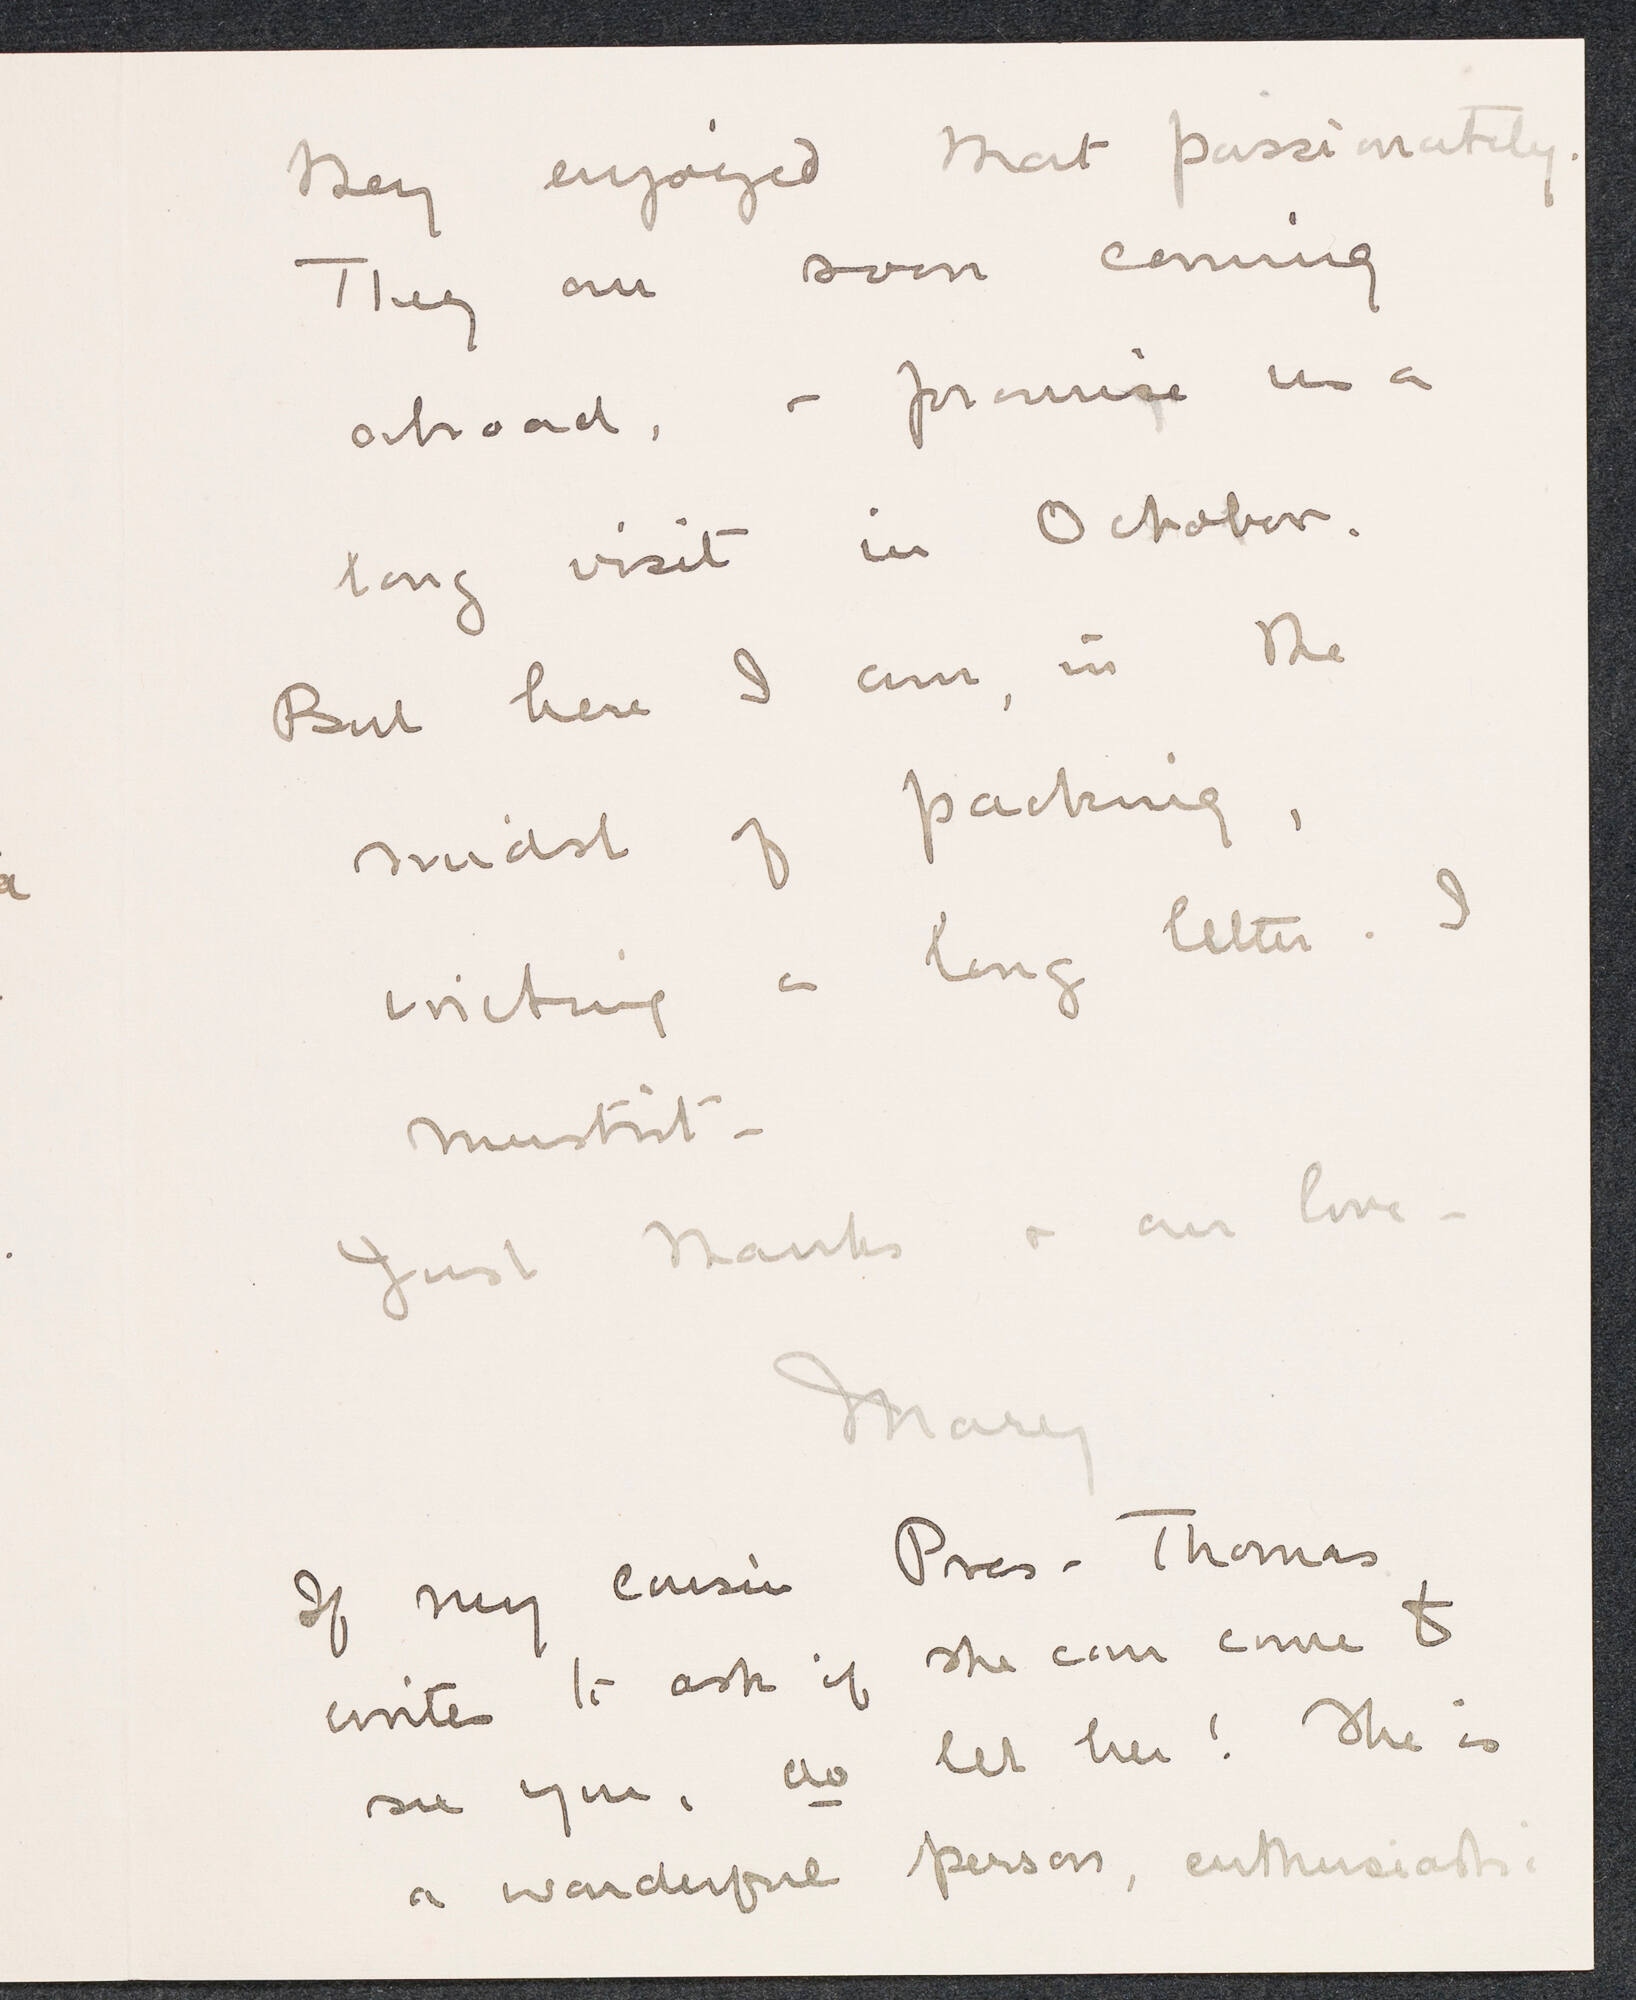 they enjoyed that passionately.
They are soon coming
abroad, & promise us a
long visit in October.
But here I am, in the
midst of packing,
writing a long letter. I
mustn't –
Just thanks & our love –
Mary
If my cousin Pres. Thomas
writes to ask if she can come to
see you, do let her! She is
a wonderful person, enthusiastic